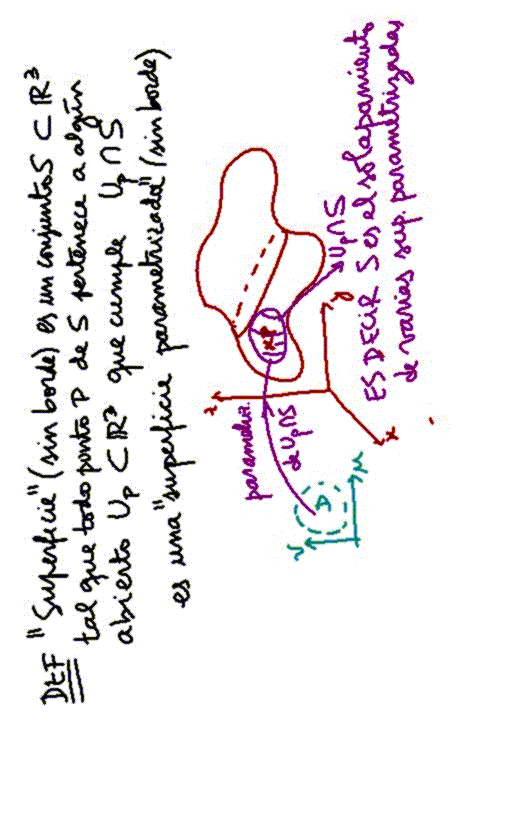 DEF "Superficie" (sin borde) es un conjunto S ⊂ ℝ³
tal que todo punto P de S pertenece a algún
abierto U_p ⊂ ℝ³ que cumple U_p ∩ S
es una "superficie parametrizada" (sin borde)
z
parametriz.
de U_p ∩ S
v
D
u
x p
U_p ∩ S
y
x
ES DECIR S es el solapamiento
de varias sup. parametrizadas